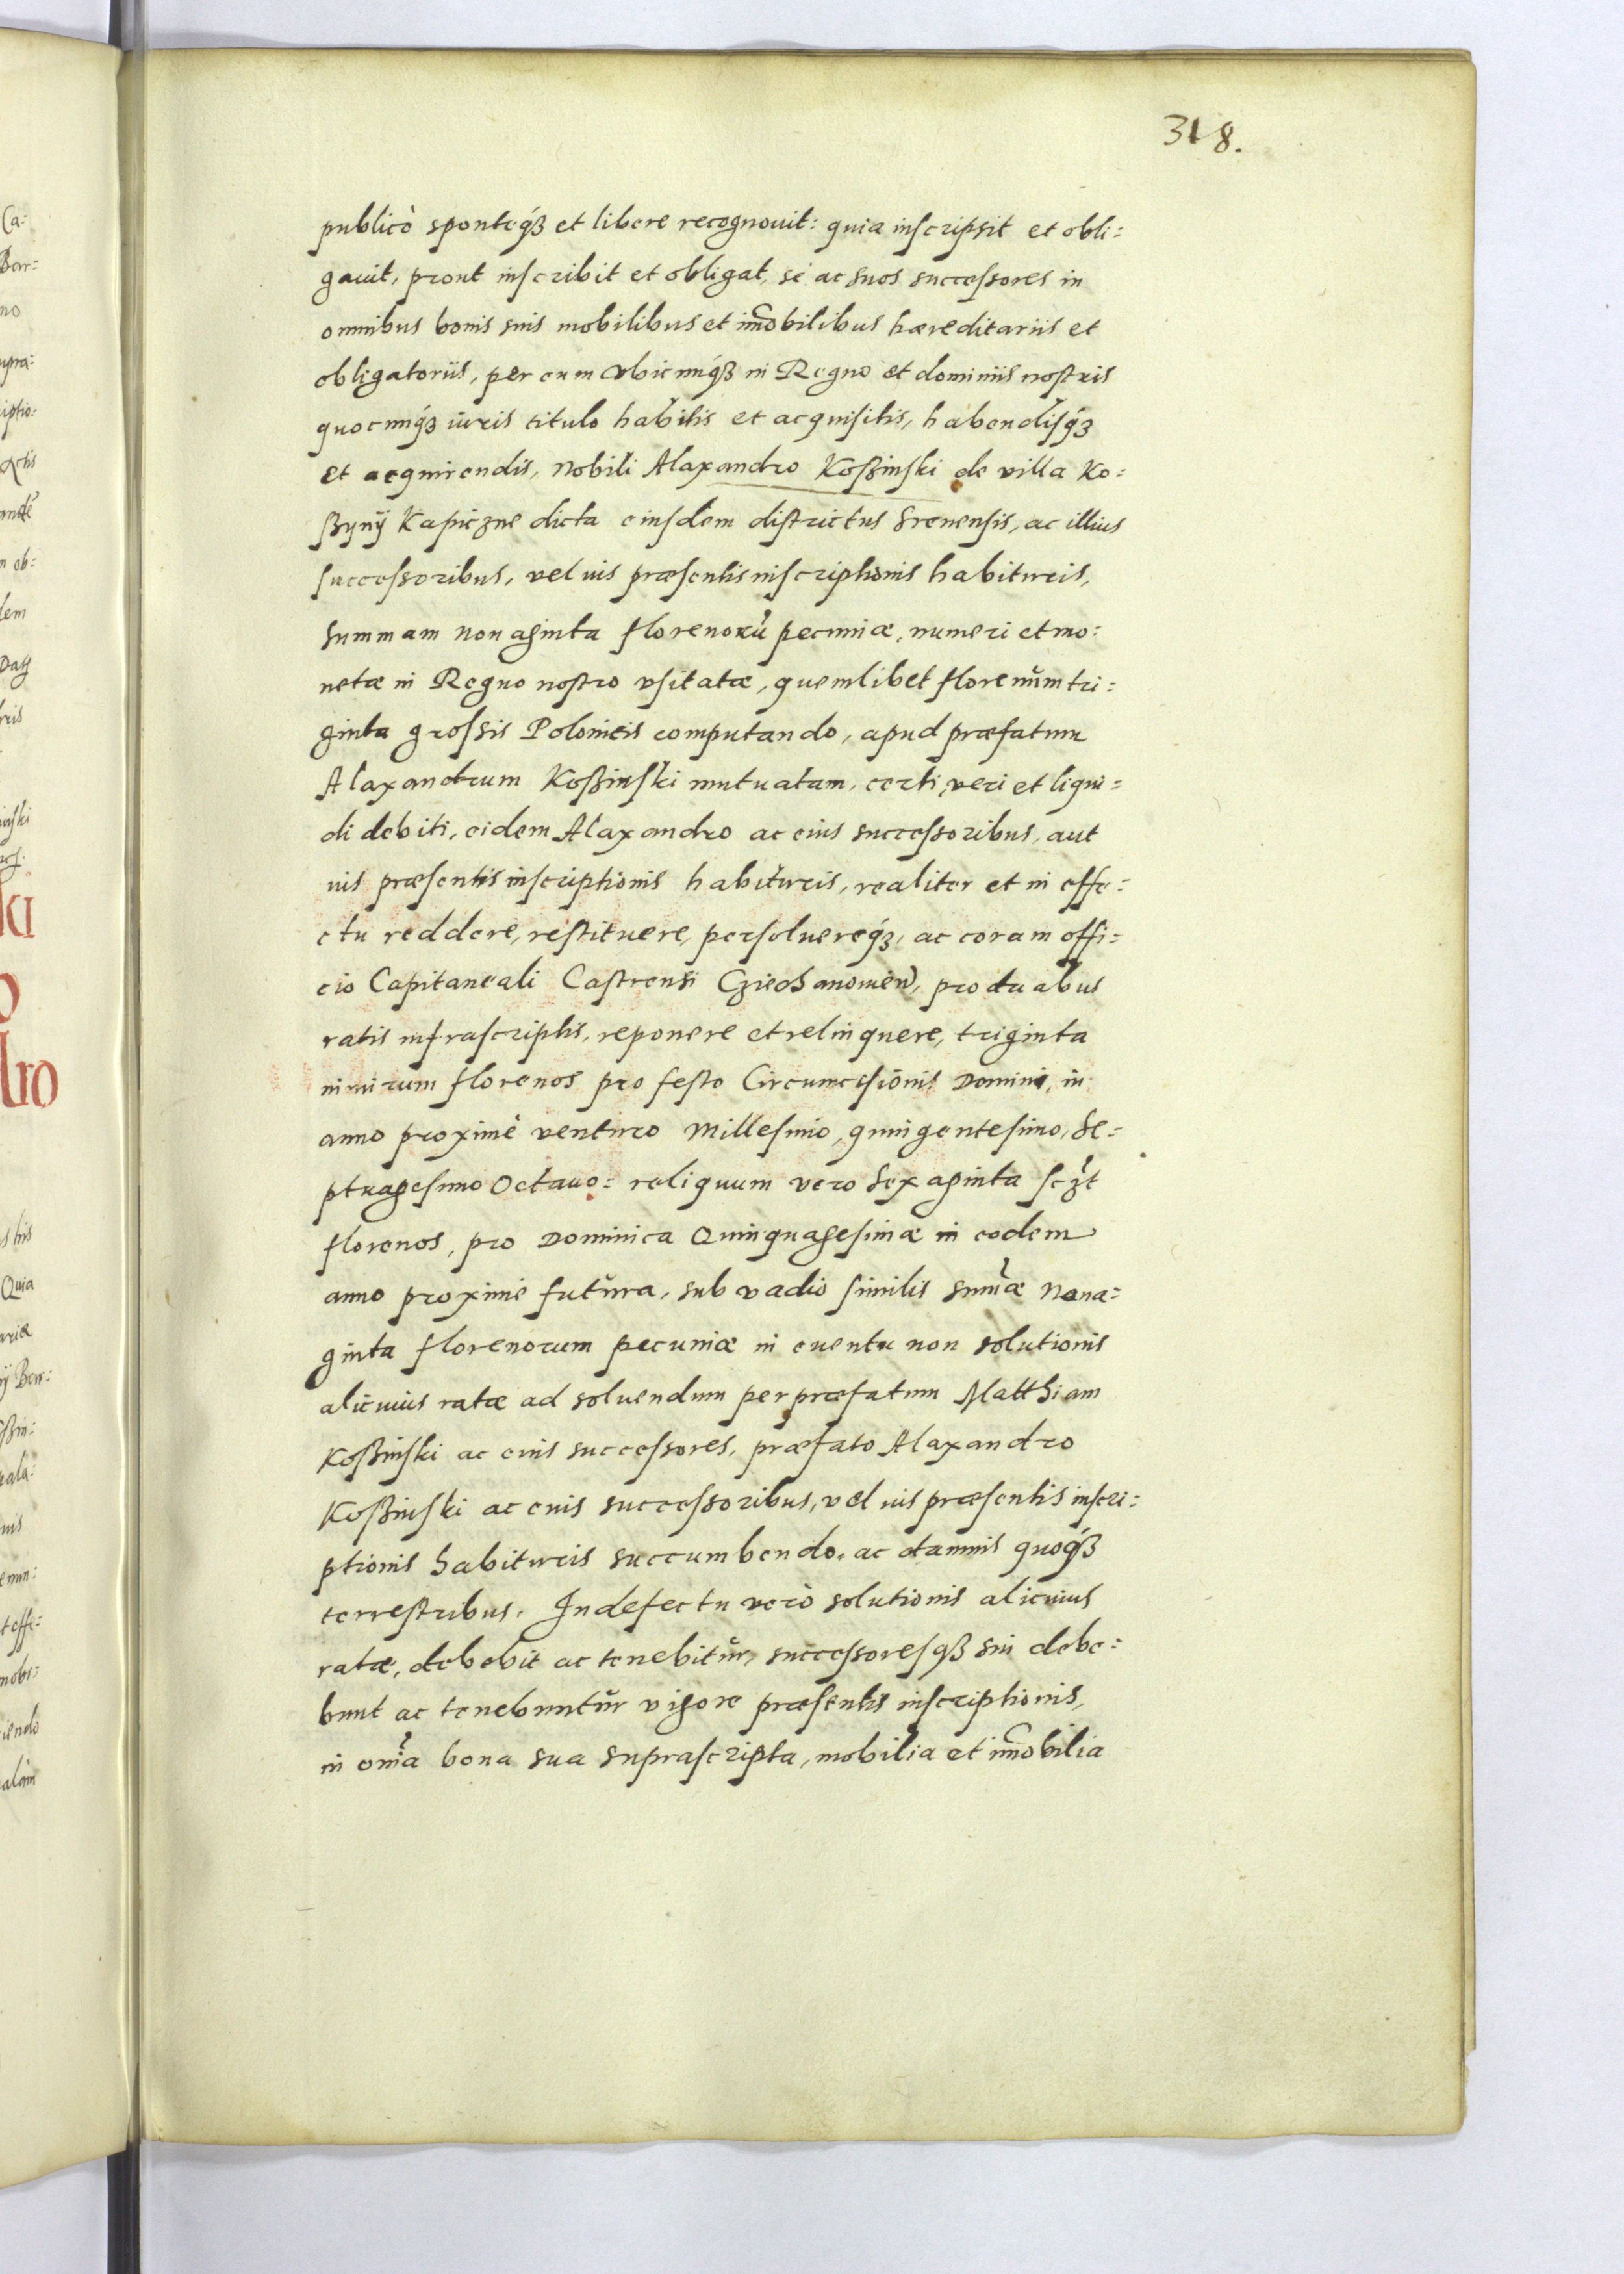 318.
publicè sponteq́ꝫ et libere recognouit: quia inscripsit et obli:
gauit, prout inscribit et obligat, se ac suos successores in
omnibus bonis suis mobilibus et im̃obilibus hæreditariis et
obligatoriis, per eum vbicunq́ꝫ in Regno et dominiis nostris
quocunq́ꝫ iuris titulo habitis et acquisitis, habendisq́ꝫ
et acquirendis, Nobili Alaxandro Koßinski de villa Ko:
ßynÿ Kapiczne dicta eiusdem districtus Srenensis, ac illius
successoribus, vel uis præsentis inscriptionis habituris,
Summam Nonaginta florenorũ pecuniæ, numeri et mo:
netæ in Regno nostro vsitatæ, quemlibet florenum tri:
ginta grossis Polonicis computando, apud præfatum
Alaxandrum Koßinski mutuatam, certi, veri et liqui:
di debiti, eidem Alaxandro ac eius successoribus, aut
uis præsentis inscriptionis habituris, realiter et in effe:
ctu reddere, restituere, persoluereq́ꝫ, ac coram offi:
cio Capitaneali Castrensi Cziechanowieñ, pro duabus
ratis infrascriptis, reponere et relinquere, triginta
nimirum florenos pro festo Circumcisionis Domini, in
anno proximè venturo Millesimo, quingentesimo, Se:
ptuagesimo Octauo: reliquum vero Sexaginta sczt
florenos, pro Dominica Quinquagesimæ in eodem
anno proximè futura, sub vadio similis sum̃æ Nona:
ginta florenorum pecuniæ in euentu non solutionis
alicuius ratæ ad soluendum per præfatum Matthiam
Koßinski ac eius successores, præfato Alaxandro
Koßinski ac eius successoribus, vel uis præsentis inscri:
ptionis habituris succumbendo, ac damnis quoq́ꝫ
terrestribus. In defectu verò solutionis alicuius
ratæ, debebit ac tenebitur, successoresqꝫ sui debe:
bunt ac tenebuntur vigore præsentis inscriptionis,
in om̃ia bona sua suprascripta, mobilia et im̃obilia